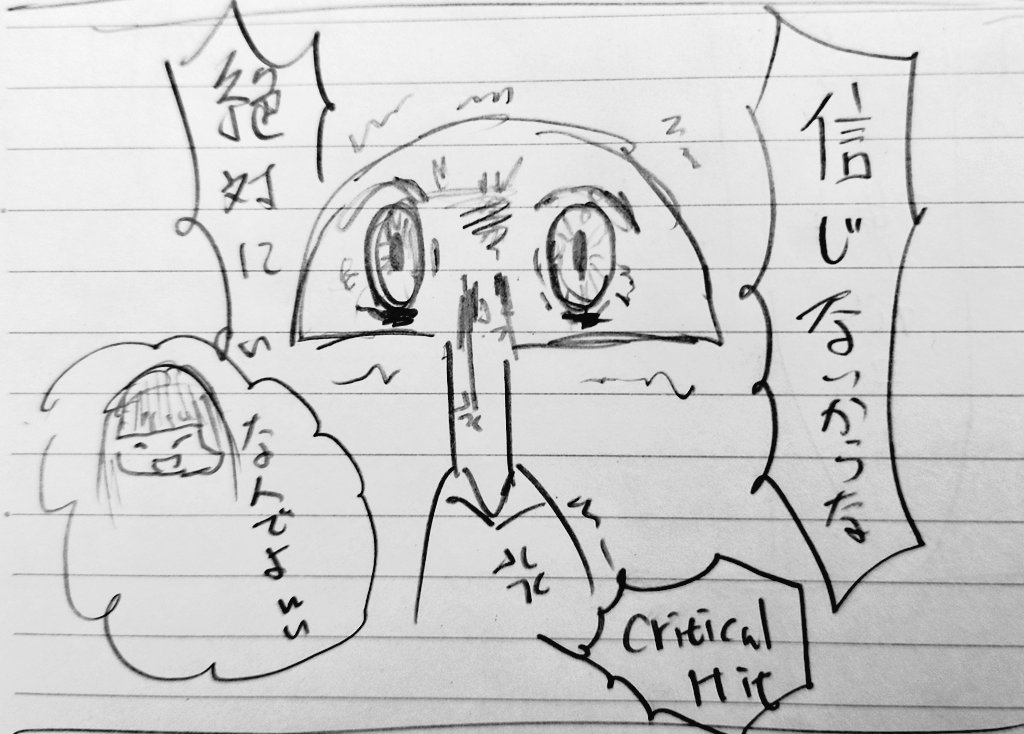 信じないからな
絶対にぃ
なんでよぃぃ
Critical
Hit